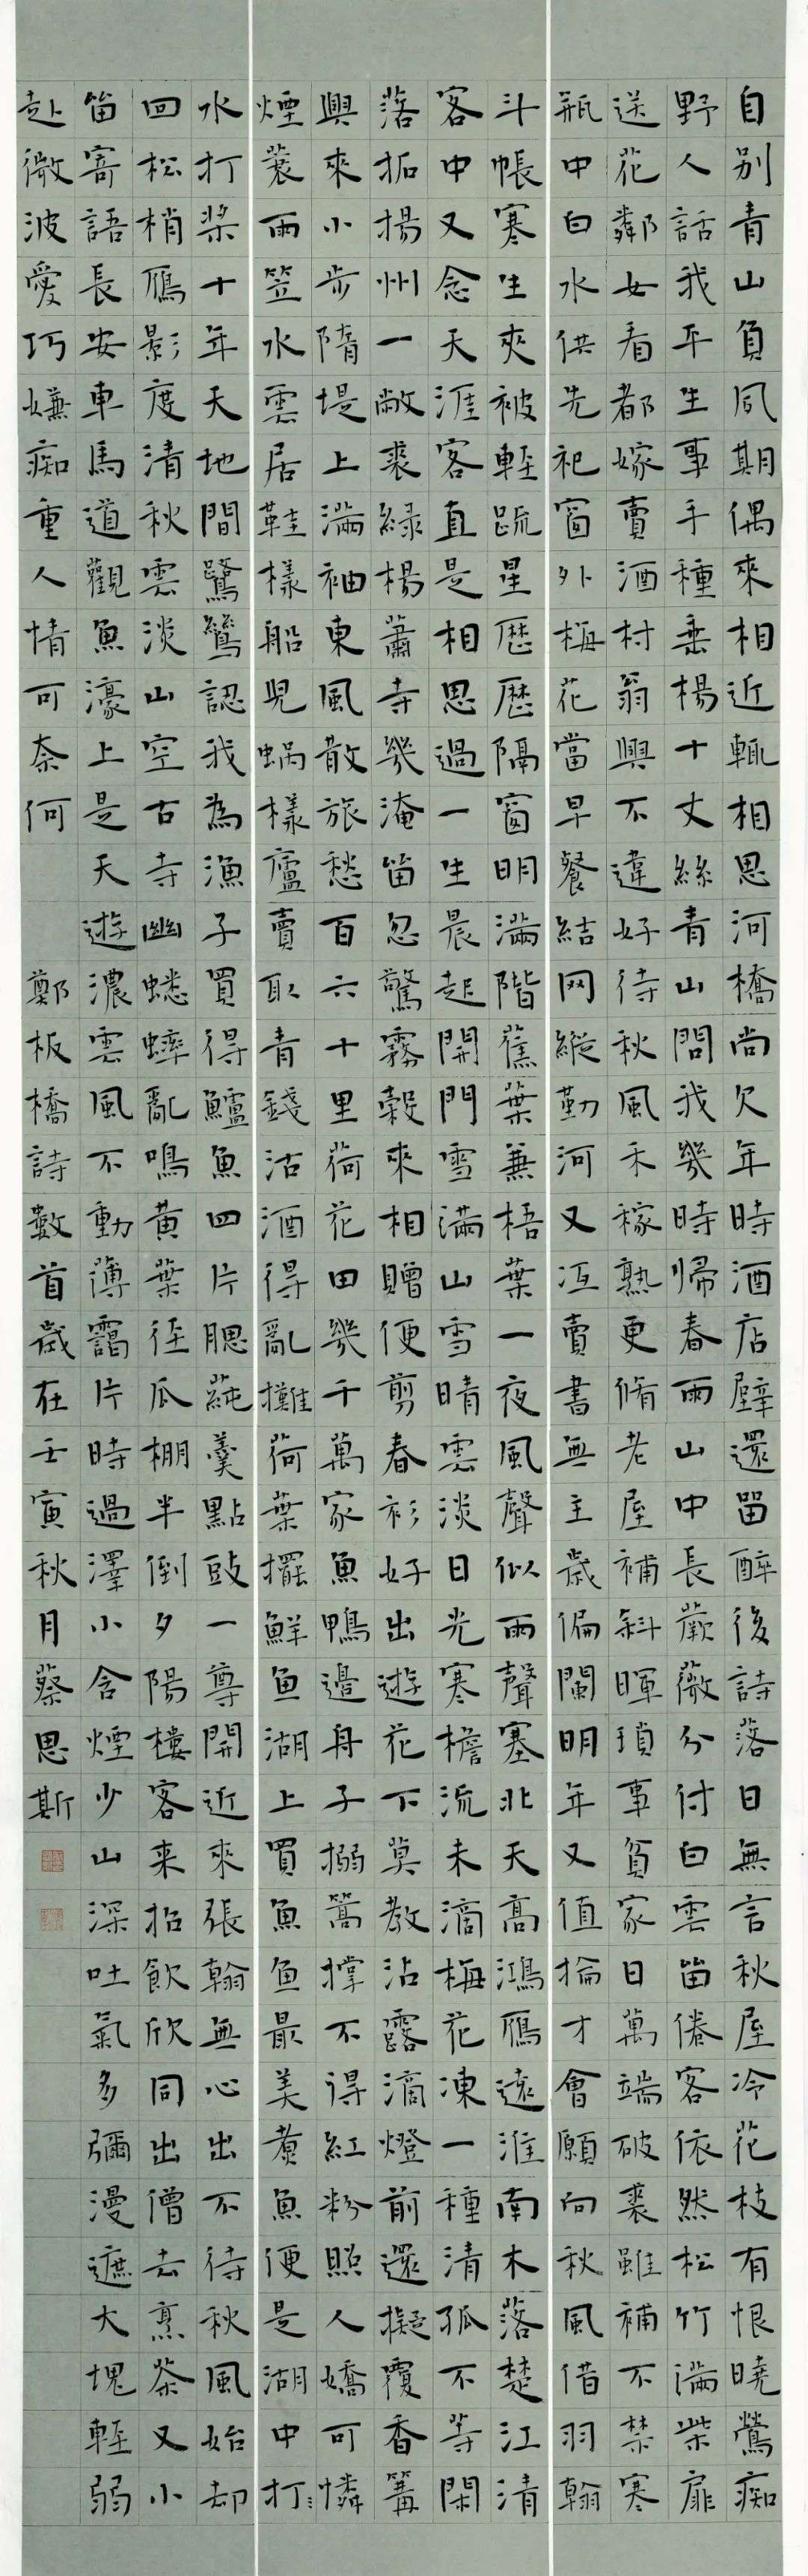 自別青山負夙期偶來相近輒相思河橋尚欠年時酒店壁還留醉後詩落日無言秋屋冷花枝有恨曉鶯痴
野人話我平生事手種垂楊十丈絲青山問我幾時歸春雨山中長蕨薇分付白雲留倦客依然松竹滿柴扉
送花鄰女看都嫁賣酒村翁興不違好待秋風禾稼熟更脩老屋補斜暉瑣事貧家日萬端破裘雖補不禁寒
瓶中白水供先祀窗外梅花當早餐結网縱勤河又冱賣書無主歲偏闌明年又值掄才會願向秋風借羽翰
斗帳寒生夾被輕疏星歷歷隔窗明滿階蕉葉兼梧葉一夜風聲似雨聲塞北天高鴻雁遠淮南木落楚江清
客中又念天涯客直是相思過一生晨起開門雪滿山雪晴雲淡日光寒檐流未滴梅花凍一種清孤不等閑
落拓揚州一敝裘綠楊蕭寺幾淹留忽驚霧縠來相贈便剪春衫好出遊花下莫教沾露滴燈前還擬覆香篝
興來小步隋堤上滿袖東風散旅愁百六十里荷花田幾千萬家魚鴨邊舟子搦篙撐不得紅粉照人嬌可憐
煙蓑雨笠水雲居鞋樣船兒蝸樣廬賣取青錢沽酒得亂攤荷葉擺鮮魚湖上買魚魚最美煑魚便是湖中打
水打槳十年天地間鷺鷥認我為漁子買得鱸魚四片腮蒓羹點豉一尊開近來張翰無心出不待秋風始却
回松梢雁影度清秋雲淡山空古寺幽蟋蟀亂鳴黃葉徑瓜棚半倒夕陽樓客来招飲欣同出僧去烹茶又小
留寄語長安車馬道觀魚濠上是天遊濃雲風不動薄靄片時過澤小含煙少山深吐氣多彌漫遮大塊輕弱
赴微波愛巧嫌痴重人情可奈何 鄭板橋詩數首歲在壬寅秋月蔡思斯